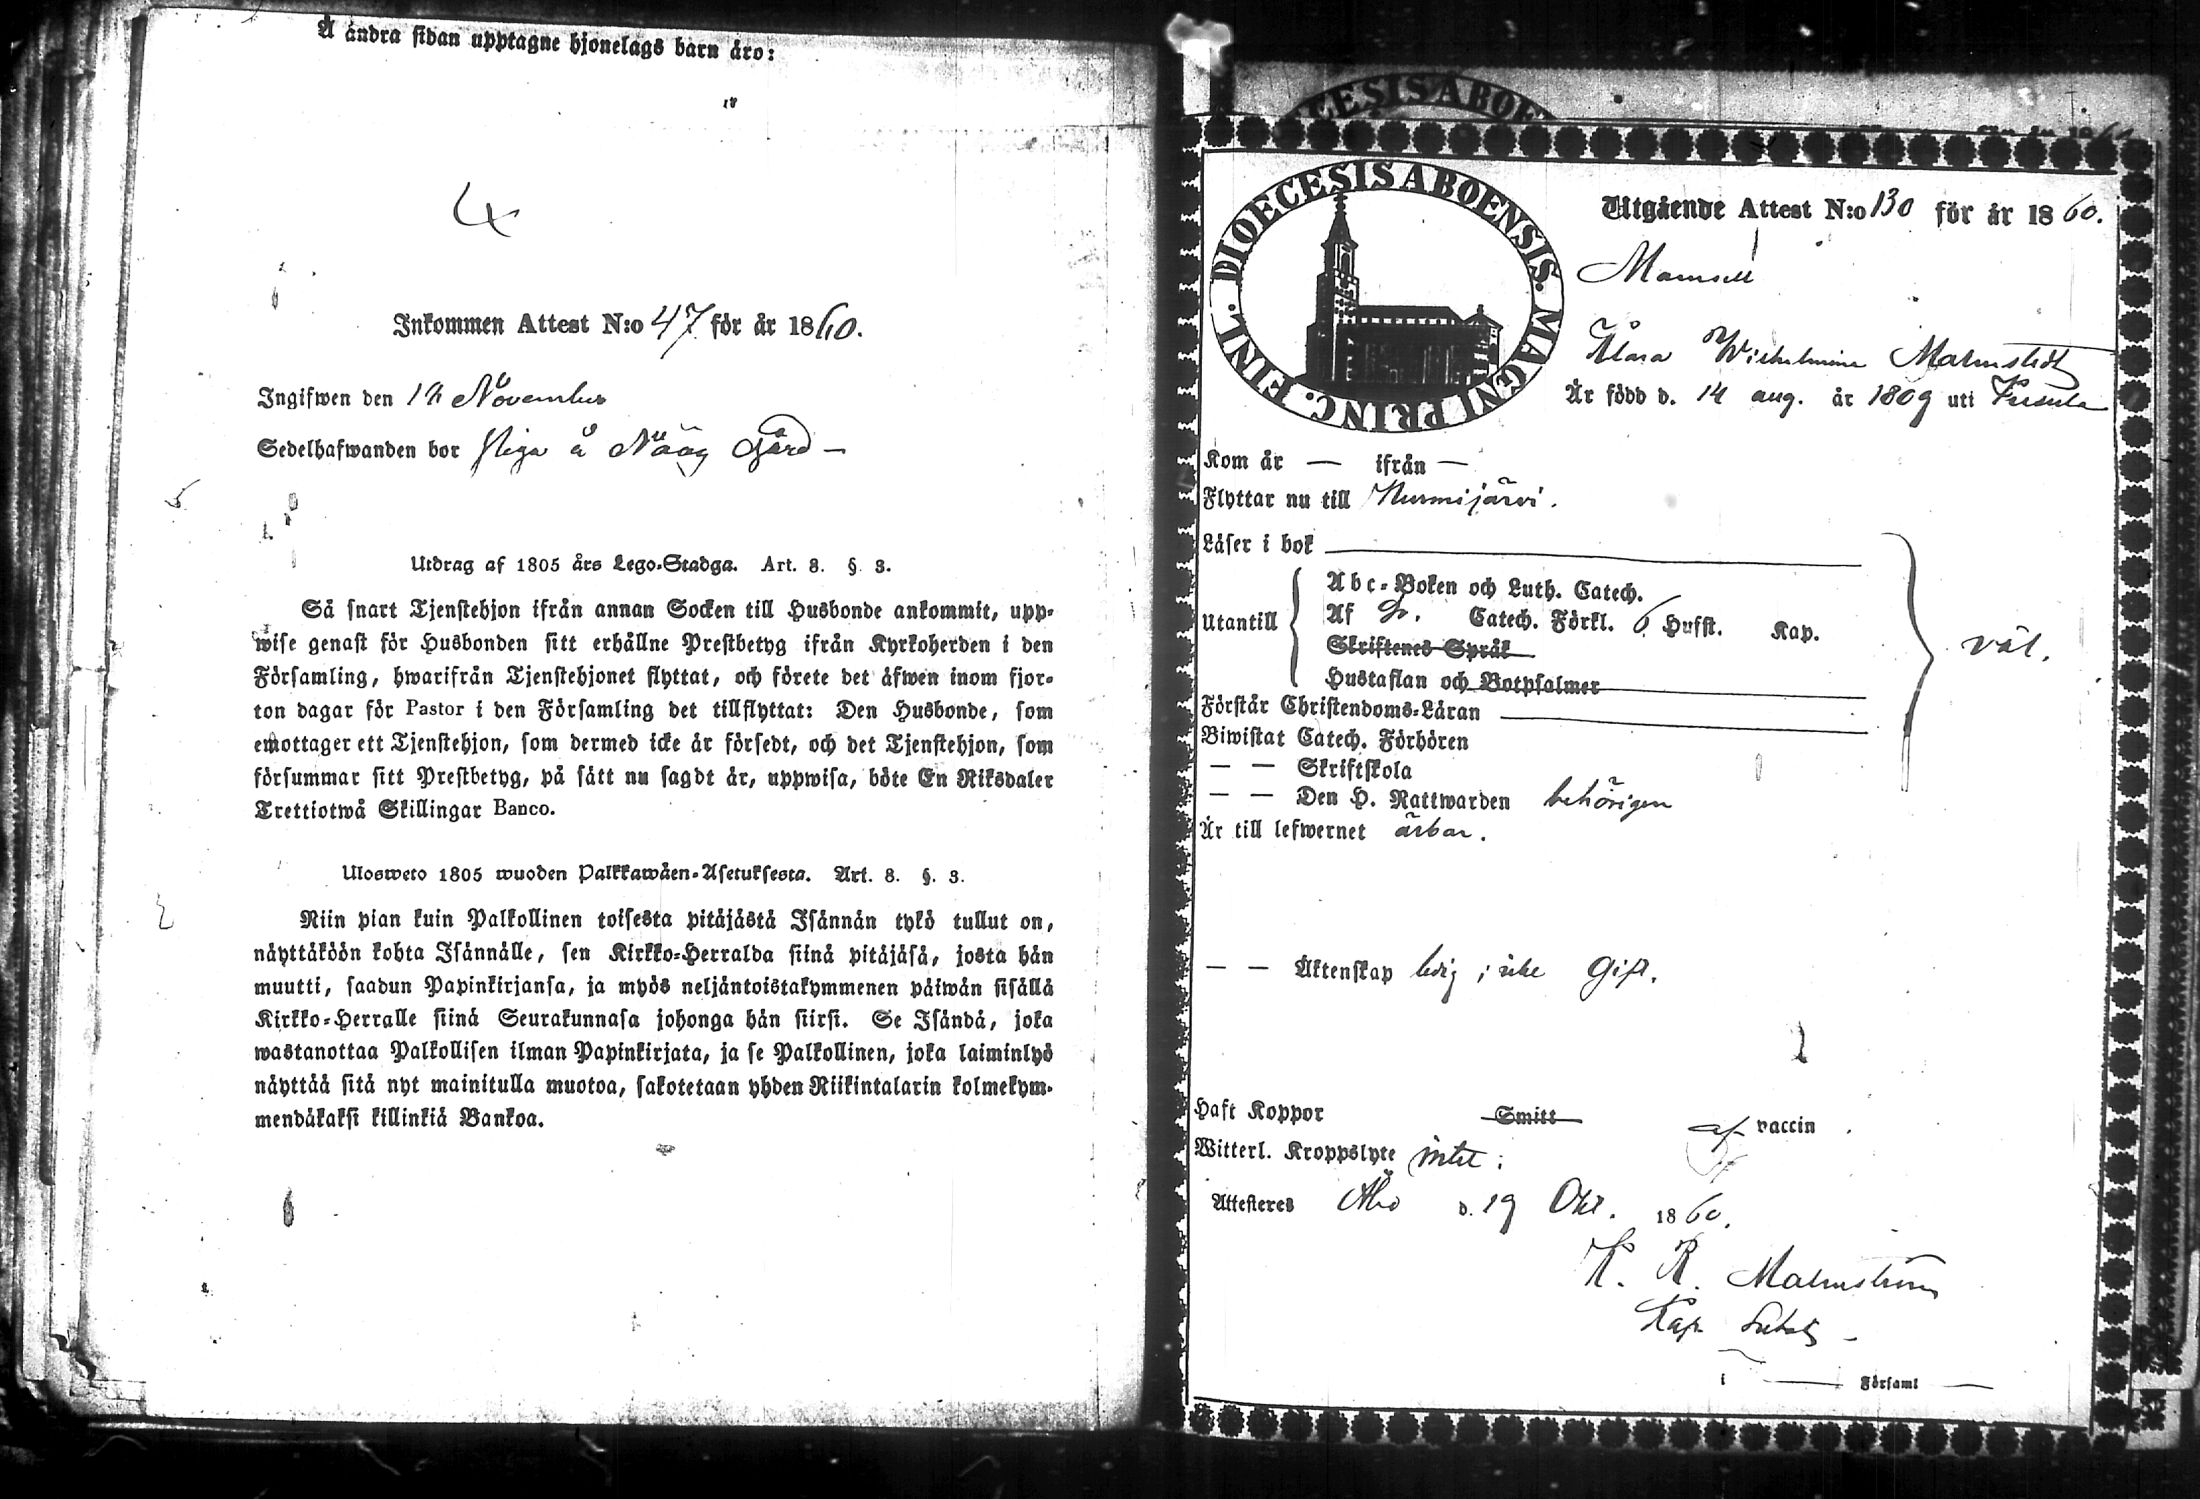 Å andra sidan upptagne hjonelags barn äro:
4
Inkommen Attest N:o 47 för år 1860.
Ingifwen den 12 November
Sedelhafwanden bor å Gård —
Utdrag af 1805 års Lego-Stadga. Art. 8. §. 3.
Så snart Tjenstehjon ifrån annan Socken till Husbonde ankommit, upp-
wise genast för Husbonden sitt erhållne Prestbetyg ifrån Kyrkoherden i den
Församling, hwarifrån Tjenstehjonet flyttat, och förete det äfwen inom fjor-
ton dagar för Pastor i den Församling det tillflyttat: Den Husbonde, som
emottager ett Tjenstehjon, som dermed icke är försedt, och det Tjenstehjon, som
försummar sitt Prestbetyg, på sätt nu sagdt är, uppwisa, böte En Riksdaler
Trettiotwå Skillingar Banco.
Ulosweto 1805 wuoden Palkkawäen-Asetuksesta. Art. 8. §. 3.
Niin pian kuin Palkollinen toisesta pitäjästä Isännän tykö tullut on,
näyttäköön kohta Isännälle, sen Kirkko-Herralda siinä pitäjäsä, josta hän
muutti, saadun Papinkirjansa, ja myös neljäntoistakymmenen päiwän sisällä
Kirkko-Herralle siinä Seurakunnasa johonga hän siirsi. Se Isändä, joka
wastanottaa Palkollisen ilman Papinkirjata, ja se Palkollinen, joka laiminlyö
näyttää sitä nyt mainitulla muotoa, sakotetaan yhden Riikintalarin kolmekym-
mendäkaksi killinkiä Bankoa.
DIOECESIS ABOENSIS. MAGNI PRINC. FINL.
Utgående Attest N:o 130 för år 1860.
Mamsell
Klara Wilhelmina Malmstedt
Är född d. 14 aug. år 1809 uti
Kom år — ifrån —
Flyttar nu till Nurmijärvi.
Läser i bok
Utantill
Abc-Boken och Luth. Catech.
Af Sv. Catech. Förkl. 6 Hufst. Kap.
Skriftenes Språk
Hustaflan och Botpsalmer
väl.
Förstår Christendoms-Läran
Biwistat Catech. Förhören
— — Skriftskola
— — Den H. Nattwarden behörigen
Är till lefwernet ärbar.
— — Äktenskap ledig; icke gift.
Haft Koppor Smitt af vaccin
Witterl. Kroppslyte intet;
Attesteres Åbo d. 19 Okt. 1860.
K. R. Malmström
Kap.
i — Församl —